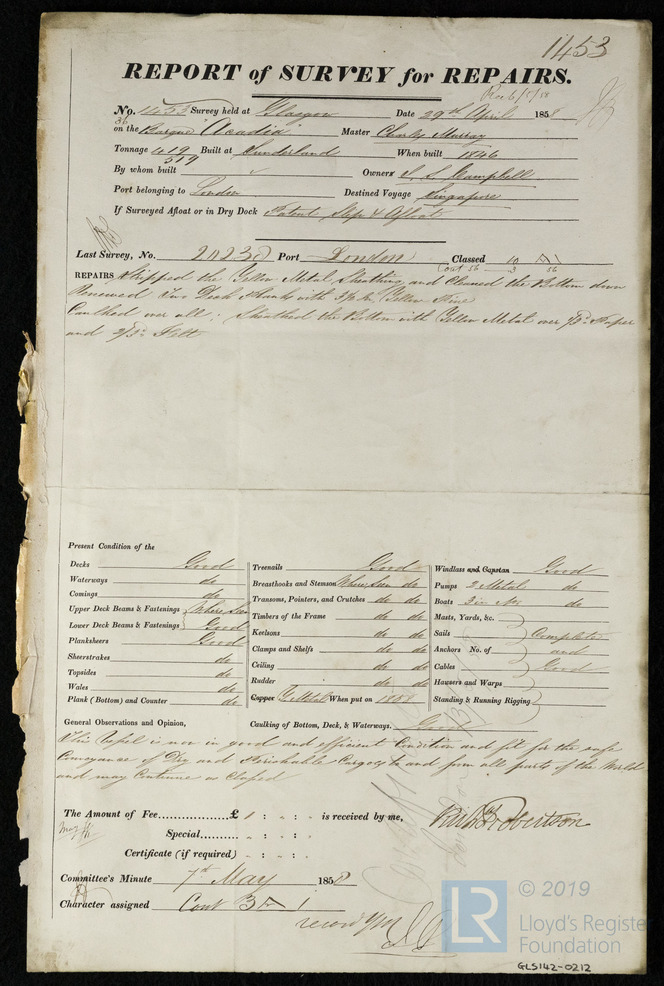 1453
REPORT of SURVEY for REPAIRS.
Rec 6/5/58
No. 1453 Survey held at Glasgow Date 29th April 1858
36
on the Barque "Acadia" Master Charles Murray
Tonnage 419 Built at Sunderland When built 1846
519
By whom built Owners Campbell
Port belonging to London Destined Voyage Singapore
If Surveyed Afloat or in Dry Dock Patent Slip & Afloat
Last Survey, No. Port London Classed
Cont 56
REPAIRS Stripped the Yellow Metal Sheathing and Cleaned the Bottom down
Renewed Two Deck Planks with Yellow Pine
Caulked over all; Sheathed the Bottom with Yellow Metal over Paper
and Felt
Present Condition of the
Decks Good Treenails Good Windlass and Capstan Good
Waterways do Breasthooks and Stemson Where Seen do Pumps 2 Metal do
Comings do Transoms, Pointers, and Crutches do do Boats 3 in No. do
Upper Deck Beams & Fastenings Where Seen Timbers of the Frame do do Masts, Yards, &c.
Lower Deck Beams & Fastenings Good Keelsons do do Sails Complete
Planksheers Good Clamps and Shelfs do do Anchors No. of and
Sheerstrakes do Ceiling do do Cables Good
Topsides do Rudder do do Hawsers and Warps
Wales do Copper Y. Metal When put on 1858 Standing & Running Rigging
Plank (Bottom) and Counter do
General Observations and Opinion, Caulking of Bottom, Deck, & Waterways. Good
This Vessel is now in good and efficient Condition and fit for the safe
Conveyance of Dry and Perishable Cargoes to and from all parts of the World
and may Continue as Classed
The Amount of Fee £ 1 : : is received by me,
Robertson
Special : :
Certificate (if required) : :
Committee's Minute 7th May 1858
Character assigned Cont 1
© 2019
LR
Lloyd's Register
Foundation
GLS142-0212